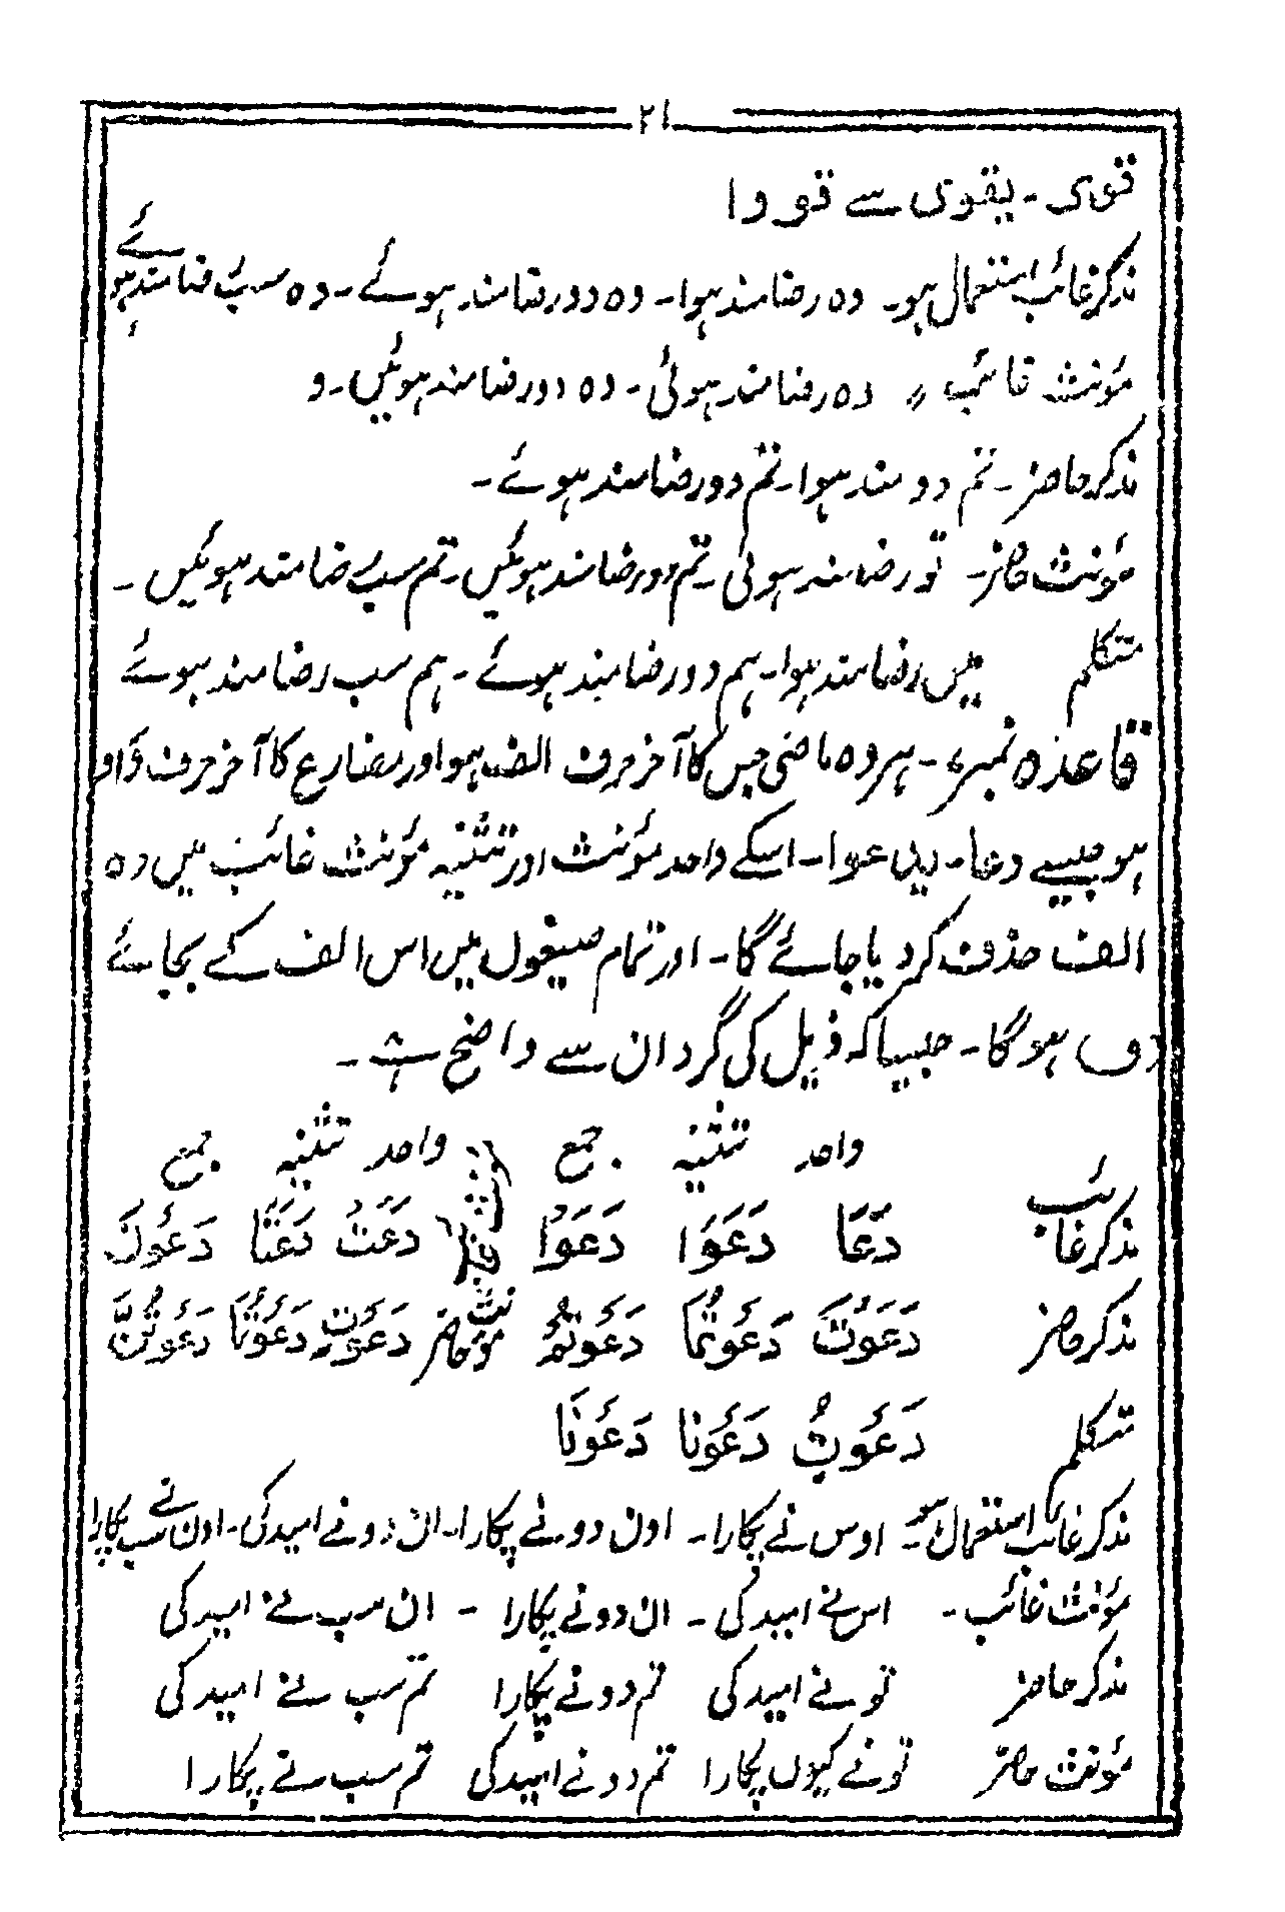 ۲۱
قوی ۔ یقوی سے قو وا
مذکر غائب استعمال ہو۔ وہ رضا مند ہوا۔ وہ دو رضا مند ہوئے۔ وہ سب ضامند ہوئے
مؤنث غائب 〃 وہ رضا مند ہوئی۔ وہ دو رضا مند ہوئیں۔ و
مذکر حاضر۔ تم دو مند ہوا۔ تم دو رضا مند ہوئے۔
مؤنث حاضر۔ تو رضا مند ہوئی۔ تم دو رضا مند ہوئیں۔ تم سب ضامند ہوئیں۔
متکلم میں رضا مند ہوا۔ ہم دو رضا مند ہوئے۔ ہم سب رضا مند ہوئے
قاعدہ نمبر ۔ ہر وہ ماضی جس کا آخر حرف الف ہو اور مضارع کا آخر حرف واو
ہو جیسے دعا۔ اسکے واحد مؤنث اور تثنیہ مؤنث غائب میں وہ
الف حذف کر دیا جائے گا۔ اور تمام صیغوں میں اس الف کے بجائے
ہوگا۔ جیسا کہ ذیل کی گردان سے واضح ہے۔
واحد تثنیہ جمع واحد تثنیہ جمع
مذکر غائب دَعَا دَعَوَا دَعَوْا مؤنث غائب دَعَتْ دَعَتَا دَعَوْنَ
مذکر حاضر دَعَوْتَ دَعَوْتُمَا دَعَوْتُمْ مؤنث حاضر دَعَوْتِ دَعَوْتُمَا دَعَوْتُنَّ
متکلم دَعَوْتُ دَعَوْنَا دَعَوْنَا
مذکر غائب استعمال ہو۔ اوس نے پکارا۔ اون دو نے پکارا۔ ان دو نے امید کی۔ اون سب نے پکارا
مؤنث غائب۔ اس نے امید کی۔ ان دو نے پکارا ۔ ان سب نے امید کی
مذکر حاضر تو نے امید کی تم دو نے پکارا تم سب نے امید کی
مؤنث حاضر تو نے کیوں پکارا تم دو نے امید کی تم سب نے پکارا